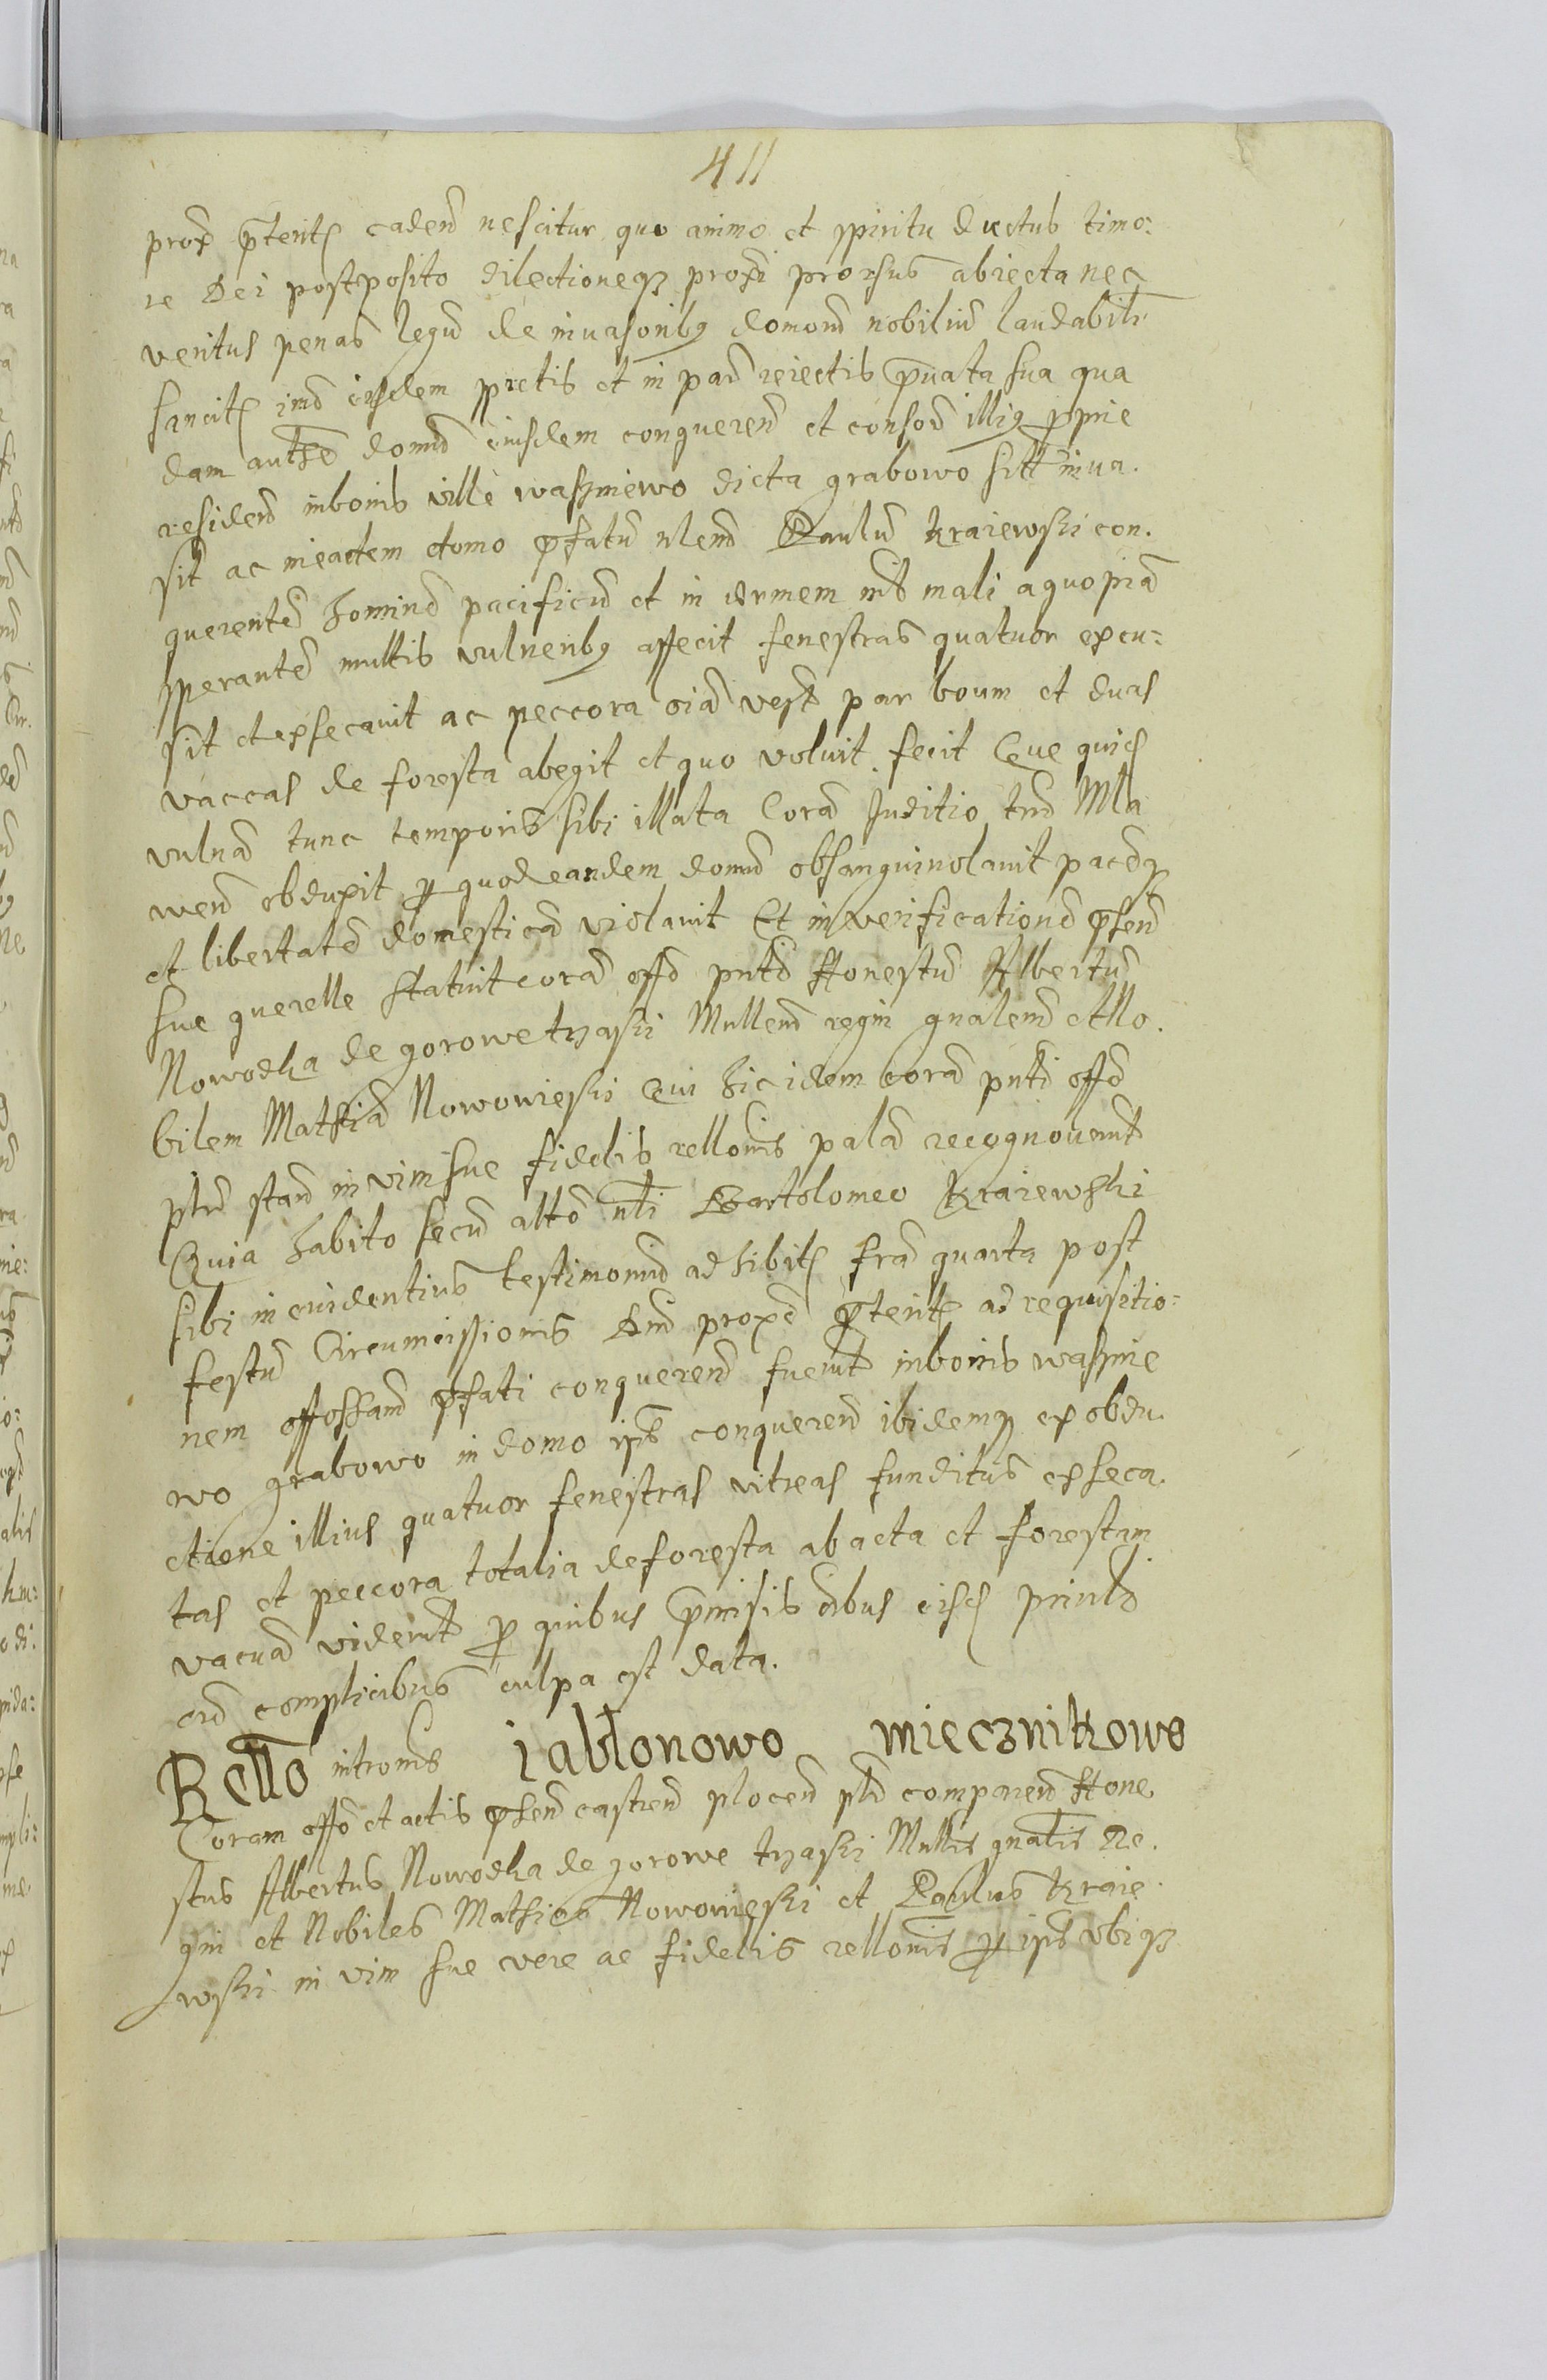 411
prox p̄terit cadeñ nescitur quo animo et spiritu ductus timo:
re Dei postposito dilectioneqꝫ proxi prorsus abiecta nec
veritus penas legũ de invasoribꝯ domorũ nobiliũ laudabitr
sancit imo eisdem spretis et in par reiectis p̄vata sua qua
dam authe domũ eiusdem conquereñ et consor illiꝯ ꝓprie
resideñ in bonis ville waszniewo dicta grabowo sitt inva.
sit ac in eadem domo p̄fatũ Paulũ Kraiewski con.
querentẽ hominẽ pacificũ et in mali a quopiã
sperantẽ multis vulneribꝯ affecit fenestras quatuor excu:
sit et exsecavit ac peccora oiã par boum et duas
vaccas de foresta abegit et quo voluit fecit Que quid
vulnera tunc temporis sibi illata Corã Juditio Mla
weñ obduxit ꝑ quod eandem domũ obsanguinolavit pacẽqꝫ
et libertatẽ domesticã violavit Et in verificationẽ p̄señ
sue querelle statuit corã offo pnti Honestũ Albertũ
Nowodka de gorowe trzaski Mlleñ regni gnalem et No.
bilem Mathiã Nowowieski Qui hic idem corã pnti offo
plr stañ in vim sue fidelis rellonis palã recognoverũt
Quia habito secũ alto nli Bartolomeo Kraiewski
sibi in evidentius testimoniũ adhibit fria quarta post
festũ Circumcissionis Dni proxe p̄terit ad requisitio:
nem p̄fati conquereñ fuerũt in bonis wasznie
wo grabowo in domo ipꝰ conquereñ ibidemqꝫ ex obdu.
ctione illius quatuor fenestras vitreas funditus exseca.
tas et peccora totalia de foresta abacta et forestam
vacuã viderũt ꝑ quibus p̄missis oibus eisd
cũ complicibus culpa est data.
Rello intromis jabłonowo miecznikowo
Coram offo et actis p̄señ castreñ ploceñ plr compareñ Hone
stus Albertus Nowodka de gorowe trzaski Mllis gnalis Re.
gni et Nobiles Mathias Nowowieski et Paulus Kraie.
wski in vim sue vere ac fidelis rellonis ꝑ ipꝰ ubiqꝫ